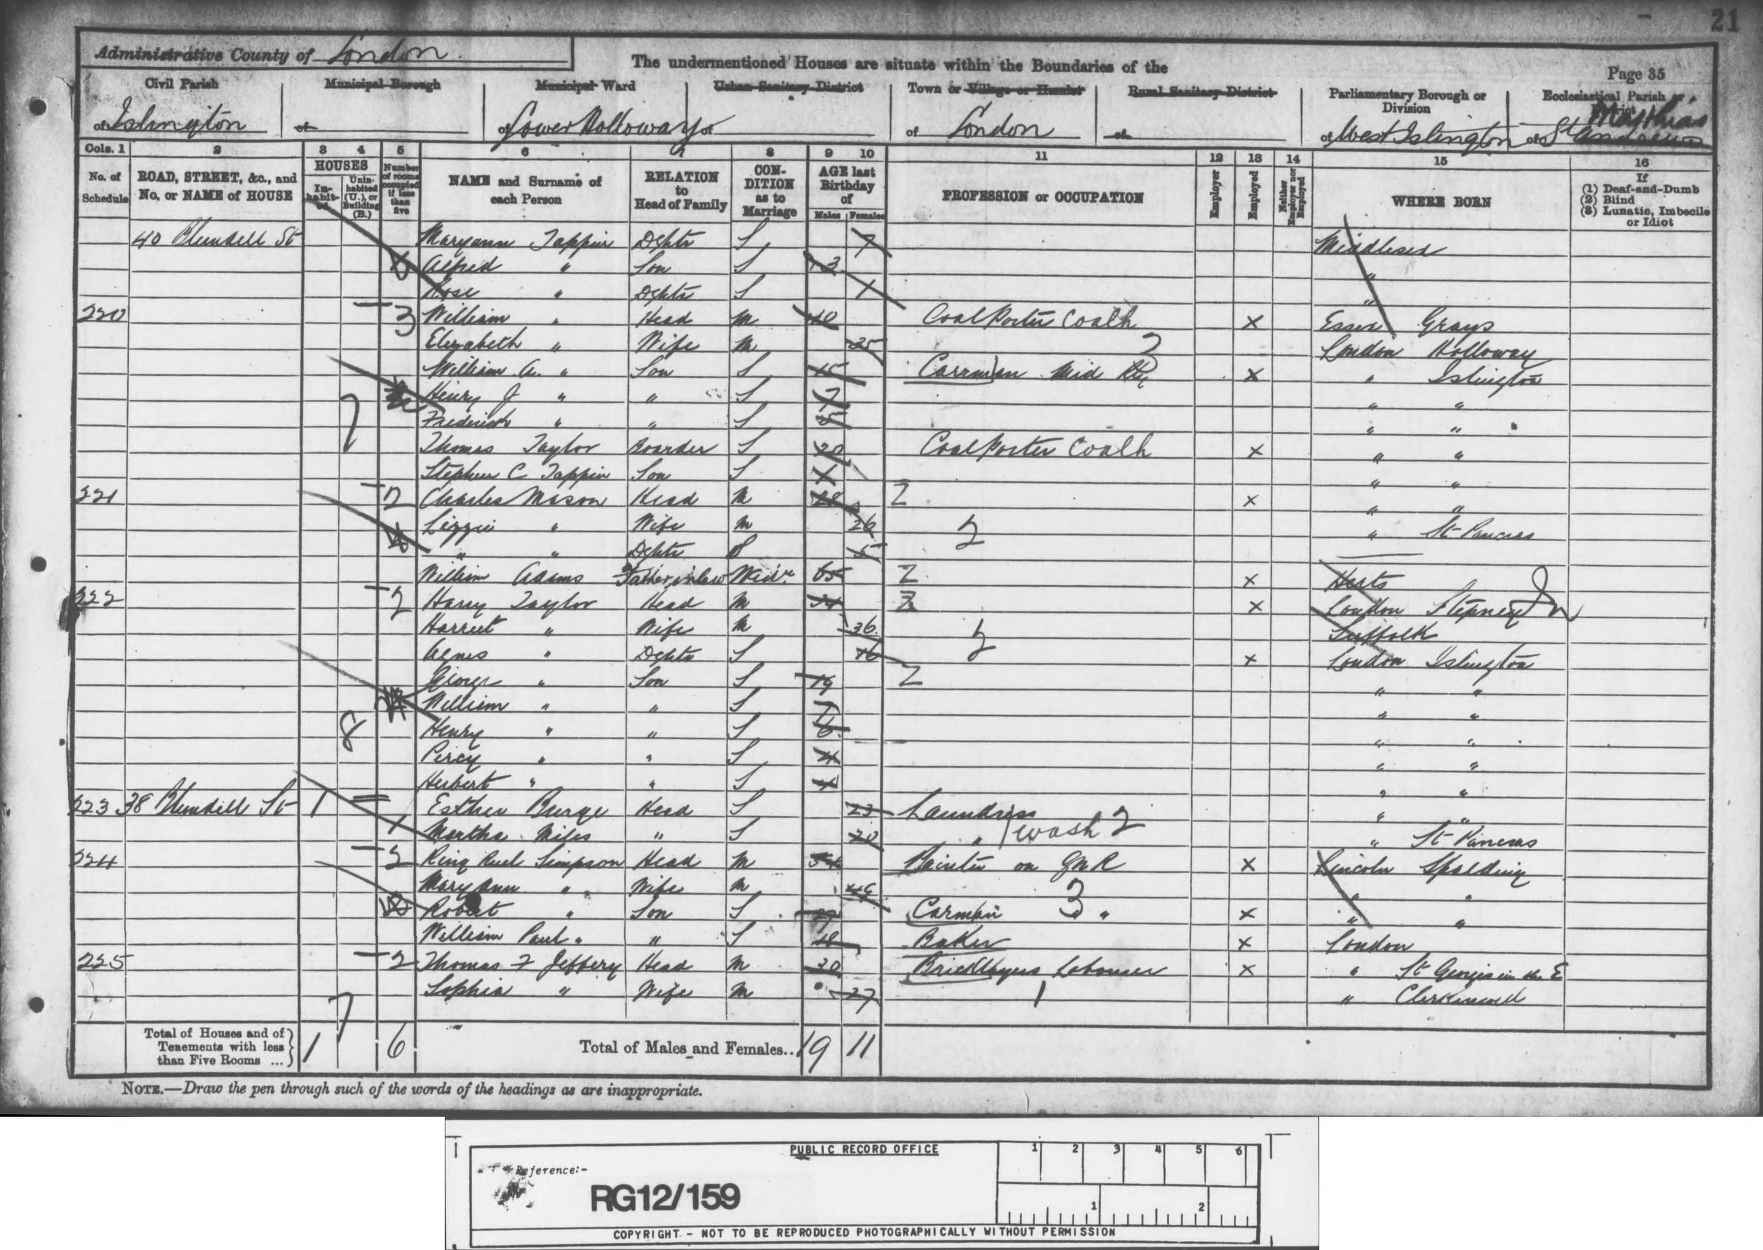 21
Administrative County of London.
The undermentioned Houses are situate within the Boundaries of the
Page 35
Civil Parish
Municipal Borough
Municipal Ward
Urban Sanitary District
Town or Village or Hamlet
Rural Sanitary District
Parliamentary Borough or Division
Ecclesiastical Parish or District
of Islington
of
of Lower Holloway
of
of London
of
of West Islington
of St Matthias
Cols. 1 2 3 4 5 6 7 8 9 10 11 12 13 14 15 16
No. of Schedule
ROAD, STREET, &c., and No. or NAME of HOUSE
HOUSES
Inhabited
Uninhabited (U.), or Building (B.)
Number of rooms occupied if less than five
NAME and Surname of each Person
RELATION to Head of Family
CONDITION as to Marriage
AGE last Birthday of
Males
Females
PROFESSION or OCCUPATION
Employer
Employed
Neither Employer nor Employed
WHERE BORN
If
(1) Deaf-and-Dumb
(2) Blind
(3) Lunatic, Imbecile or Idiot
40 Blundell St Maryann Tappin Dghtr S 7 Middlesex
Alfred " Son S 3 "
Rose " Dghtr S 1 "
220 3 William " Head M 40 Coal Porter Coalh x Essex Grays
Elizabeth " Wife M 35 London Holloway
William A. " Son S 15 Carman Mid Rly x " Islington
Henry J " " S 7 " "
Frederick " " S 5 " "
Thomas Taylor Boarder S 20 Coal Porter Coalh x " "
Stephen C Tappin Son S " "
221 2 Charles Mason Head M 28 x " "
Lizzie " Wife M 26 " St Pancras
" " Dghtr S 5
William Adams Father in law Widr 65 x Herts
222 2 Harry Taylor Head M x London Stepney
Harriet " Wife M 36 Suffolk
Agnes " Dghtr S 16 x London Islington
George " Son S " "
William " " S " "
Henry " " S 6 " "
Percy " " S 4 " "
Herbert " " S " "
223 38 Blundell St 1 Esther Burge Head S 23 Laundress " "
Martha Miles " S 20 " wash 2 " St Pancras
224 2 Simpson Head M 54 Painter on GNR x Lincoln Spalding
Mary Ann " Wife M 49 " "
Robert " Son S Carman " x " "
William Paul " " S 18 Baker x London
225 2 Thomas F Jeffery Head M 30 Bricklayers Labourer x " St Georges in the E
Sophia " Wife M 27 " Clerkenwell
Total of Houses and of Tenements with less than Five Rooms ... 1 6
Total of Males and Females.. 19 11
NOTE.—Draw the pen through such of the words of the headings as are inappropriate.
PUBLIC RECORD OFFICE
1 2 3 4 5 6
Reference:-
RG12/159
1 2
COPYRIGHT - NOT TO BE REPRODUCED PHOTOGRAPHICALLY WITHOUT PERMISSION